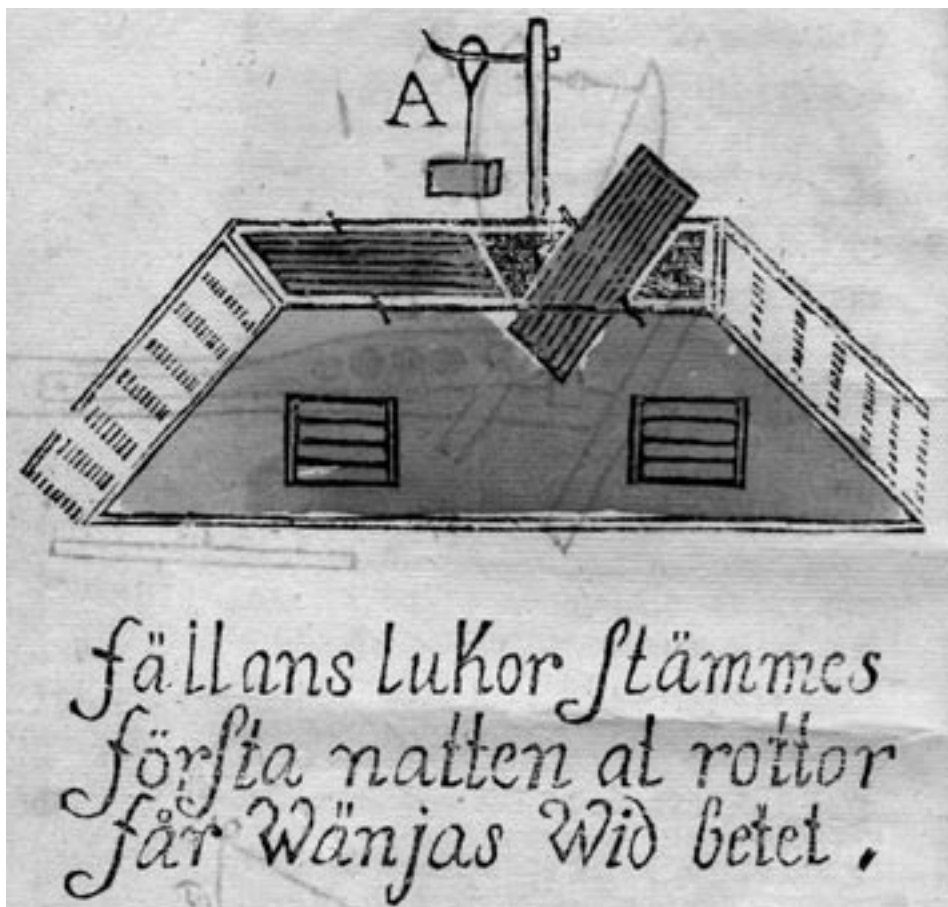 A
fällans lukor ſtämmes
förſta natten at rottor
får Wänjas Wid betet.